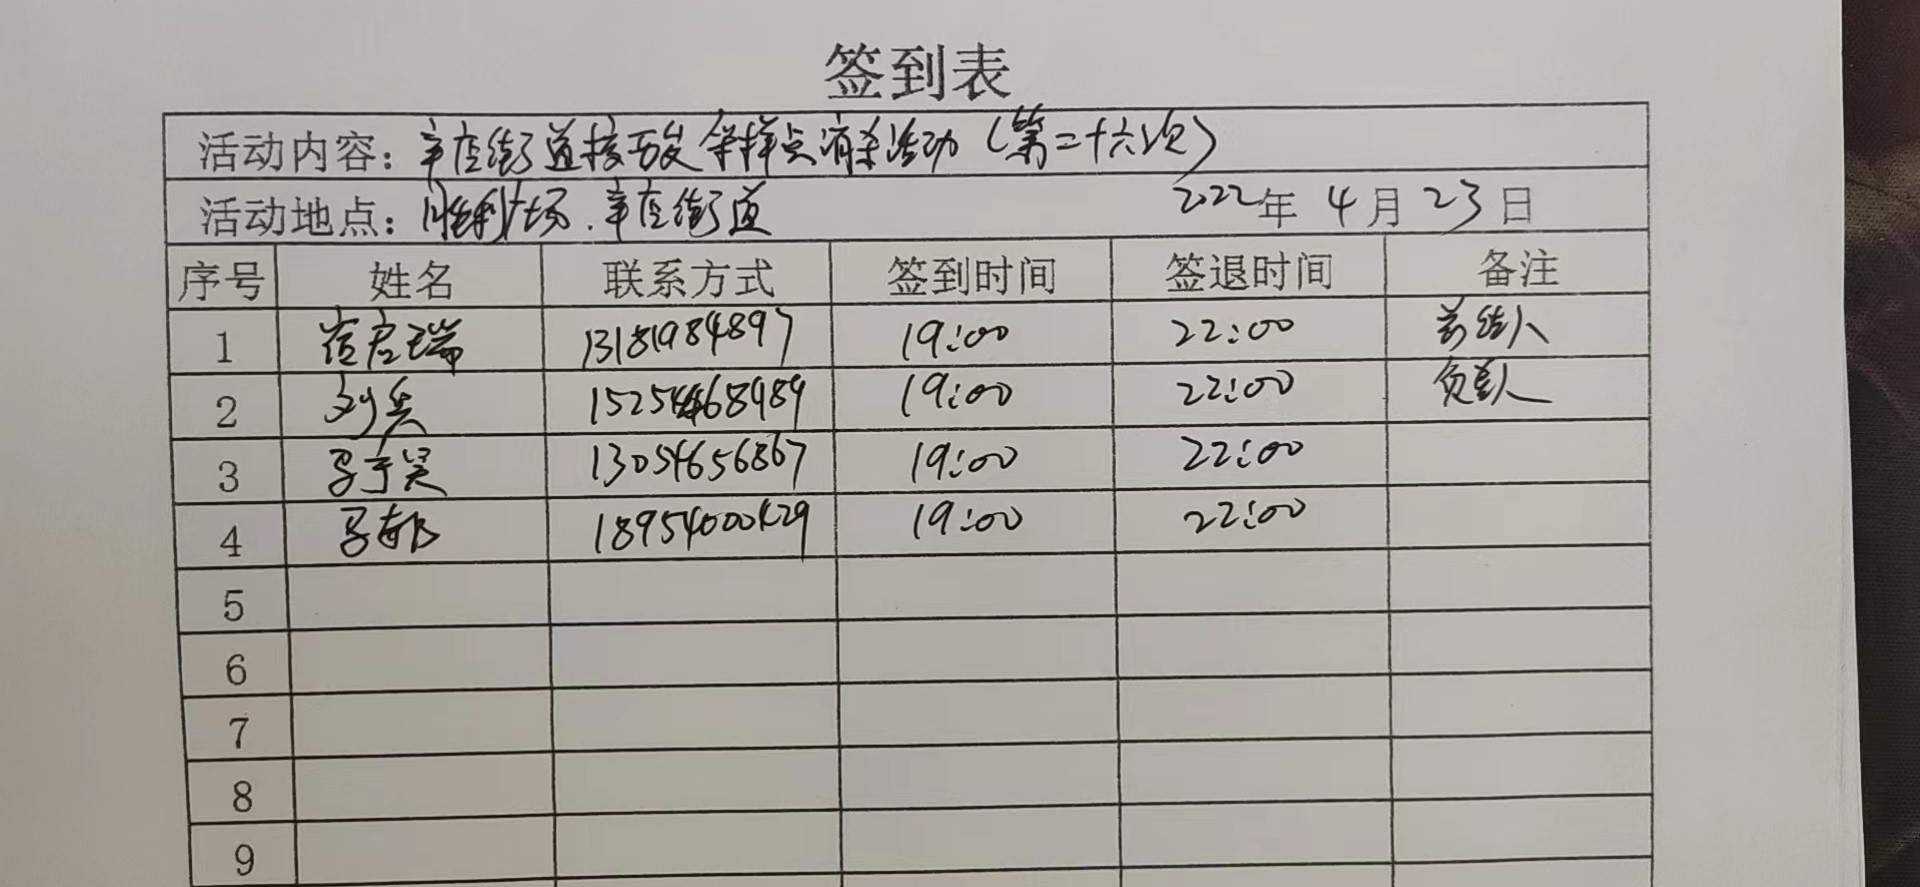 签到表
活动内容：辛店街道核酸采样点消杀活动（第二十六次）
活动地点：胜利广场.辛店街道 2022年4月23日
序号 姓名 联系方式 签到时间 签退时间 备注
1 13181984897 19:00 22:00
2 刘兵 19:00 22:00 负责人
3 13054656867 19:00 22:00
4 19:00 22:00
5
6
7
8
9